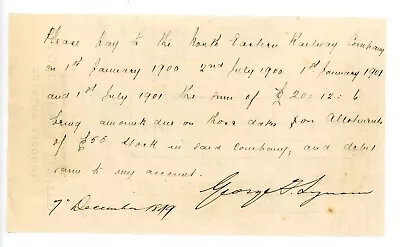 Please pay to the North Eastern Railway Company
on 1st January 1900 2nd July 1900 1st January 1901
and 1st July 1901 the sum of £20:12:6
being amount due on those dates for Allotments
of £55 Stock in said Company, and debit
same to my account.
George
7th December 1899